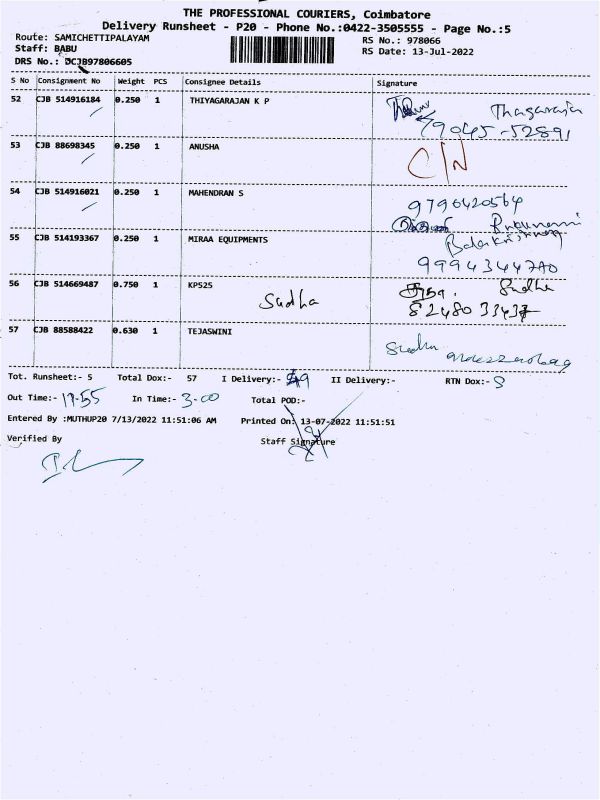 THE PROFESSIONAL COURIERS, Coimbatore
Delivery Runsheet - P20 - Phone No.:0422-3505555 - Page No.:5
Route: SAMICHETTIPALAYAM RS No.: 978066
Staff: BABU RS Date: 13-Jul-2022
DRS No.: DCJB97806605
S No Consignment No Weight PCS Consignee Details Signature
52 CJB 514916184 0.250 1 THIYAGARAJAN K P Thagaraja
79045-52891
53 CJB 88698345 0.250 1 ANUSHA C/N
54 CJB 514916021 0.250 1 MAHENDRAN S 9790420564
55 CJB 514193367 0.250 1 MIRAA EQUIPMENTS Balakrishnan
9994344740
56 CJB 514669487 0.750 1 KP525 Sudha Sudha
82480 33437
57 CJB 88588422 0.630 1 TEJASWINI Sudha
Tot. Runsheet:- 5 Total Dox:- 57 I Delivery:- 49 II Delivery:- RTN Dox:- 8
Out Time:- 11.55 In Time:- 3.00 Total POD:-
Entered By :MUTHUP20 7/13/2022 11:51:06 AM Printed On: 13-07-2022 11:51:51
Verified By Staff Signature